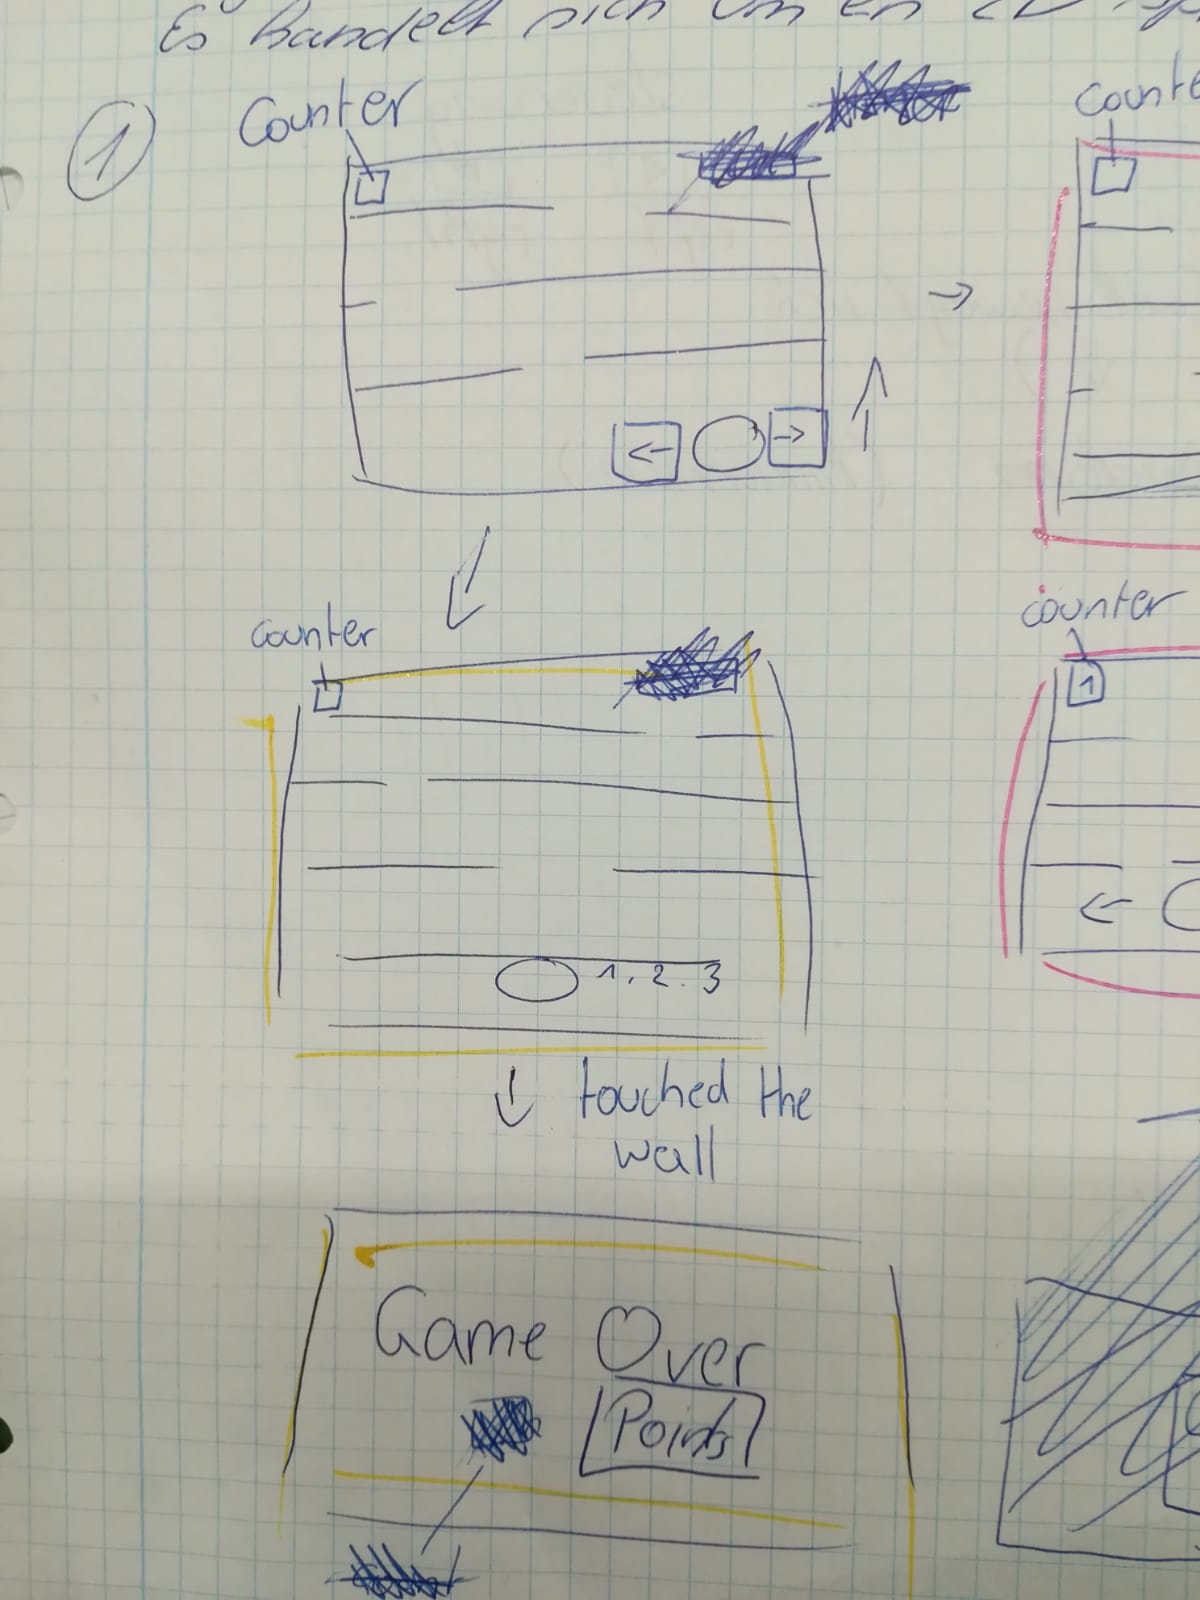 Es handelt sich um en 2D
1
Counter
Counte
←
→
counter
counter
1
1, 2. 3
touched the
wall
Game Over
Points